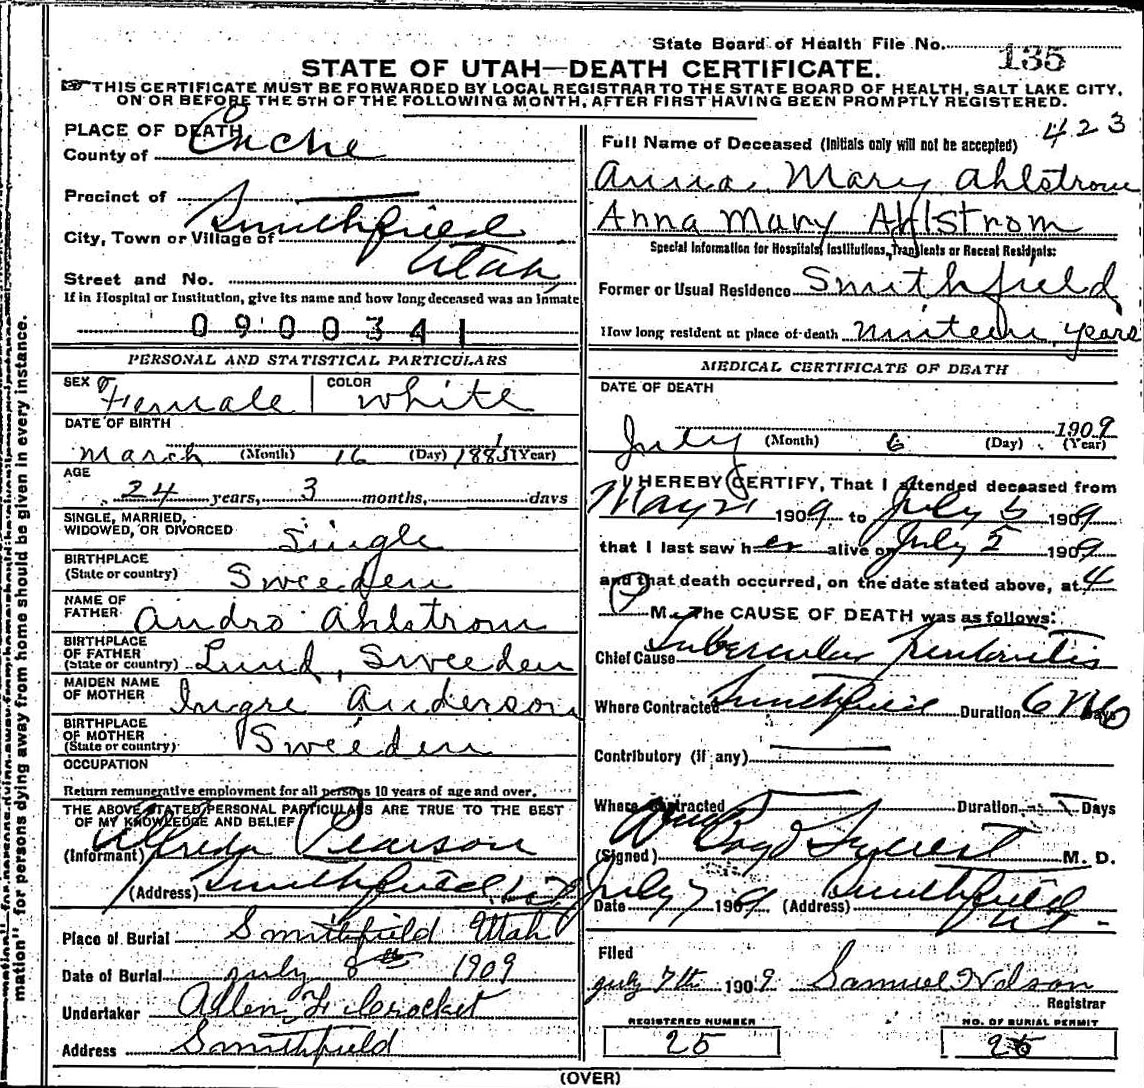 State Board of Health File No. 135
STATE OF UTAH—DEATH CERTIFICATE.
THIS CERTIFICATE MUST BE FORWARDED BY LOCAL REGISTRAR TO THE STATE BOARD OF HEALTH, SALT LAKE CITY,
ON OR BEFORE THE 5TH OF THE FOLLOWING MONTH, AFTER FIRST HAVING BEEN PROMPTLY REGISTERED.
PLACE OF DEATH
County of Cache
Precinct of
City, Town or Village of Smithfield
Utah,
Street and No.
If in Hospital or Institution, give its name and how long deceased was an inmate
0900341
PERSONAL AND STATISTICAL PARTICULARS
SEX Female COLOR White
DATE OF BIRTH
March (Month) 16 (Day) 188 (Year)
AGE
24 years, 3 months, days
SINGLE, MARRIED,
WIDOWED, OR DIVORCED Single
BIRTHPLACE
(State or country) Sweeden
NAME OF
FATHER Andro Ahlstrom
BIRTHPLACE
OF FATHER
(State or country) Lund, Sweeden
MAIDEN NAME
OF MOTHER Ingre Anderson
BIRTHPLACE
OF MOTHER
(State or country) Sweeden
OCCUPATION
Return remunerative employment for all persons 10 years of age and over.
THE ABOVE STATED PERSONAL PARTICULARS ARE TRUE TO THE BEST
OF MY KNOWLEDGE AND BELIEF
(Informant) Alfreda Pearson
(Address) Smithfield, Utah
Place of Burial Smithfield Utah
Date of Burial july 8th 1909
Undertaker Allen Crocket
Address Smithfield
423
Full Name of Deceased (Initials only will not be accepted)
Anna Mary Ahlstrom
Anna Mary Ahlstrom
Special Information for Hospitals, Institutions, Transients or Recent Residents:
Former or Usual Residence Smithfield
How long resident at place of death ninteen years
MEDICAL CERTIFICATE OF DEATH
DATE OF DEATH
July (Month) 6 (Day) 1909 (Year)
I HEREBY CERTIFY, That I attended deceased from
May 21 1909 to July 5 1909
that I last saw her alive on July 5 1909
and that death occurred, on the date stated above, at 4
P M. The CAUSE OF DEATH was as follows:
Chief Cause Tubercular Peritonitis
Where Contracted Smithfield Duration 6 Mo Days
Contributory (if any)
Where Contracted Duration Days
(Signed) M. D.
Date July 7 1909 (Address) Smithfield
Ut
Filed
july 7th 1909 Samuel Nilson
Registrar
REGISTERED NUMBER
25
NO. OF BURIAL PERMIT
25
(OVER)
mation" for persons dying away from home should be given in every instance.